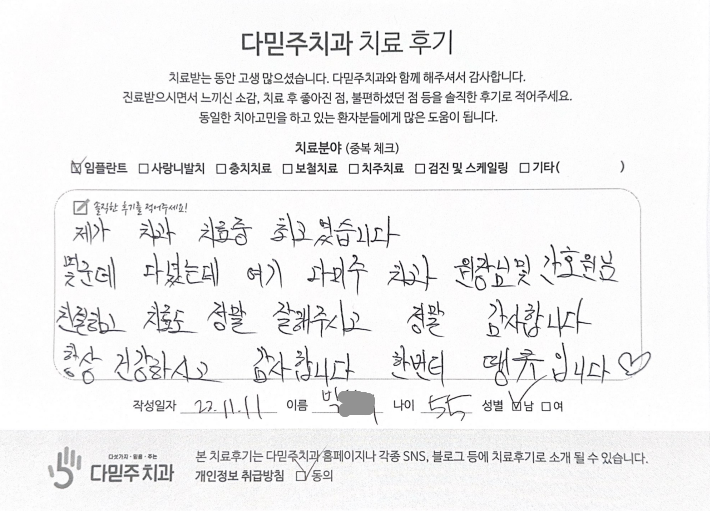 다믿주치과 치료 후기
치료받는 동안 고생 많으셨습니다. 다믿주치과와 함께 해주셔서 감사합니다.
진료받으시면서 느끼신 소감, 치료 후 좋아진 점, 불편하셨던 점 등을 솔직한 후기로 적어주세요.
동일한 치아고민을 하고 있는 환자분들에게 많은 도움이 됩니다.
치료분야 (중복 체크)
임플란트 사랑니발치 충치치료 보철치료 치주치료 검진 및 스케일링 기타( )
솔직한 후기를 적어주세요!
제가 치과 치료중 최고 였습니다
몇군데 다녔는데 여기 다미주 치과 원장님및 간호원님
친절하고 치료도 정말 잘해주시고 정말 감사합니다
항상 건강하시고 감사합니다 한번더 땡큐 입니다
작성일자 22.11.11 이름 박 나이 55 성별 남 여
다섯가지·믿음·주는
다믿주치과
본 치료후기는 다믿주치과 홈페이지나 각종 SNS, 블로그 등에 치료후기로 소개 될 수 있습니다.
개인정보 취급방침 동의